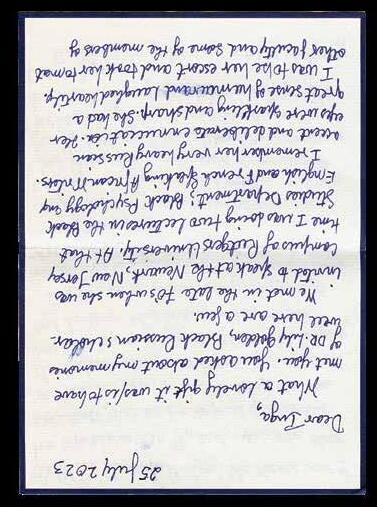 25 July 2023
Dear Inga,
What a lovely gift it was/is to have
met you. You asked about my memories
of DR. Lily Golden, Black Russian scholar.
Well here are a few.
We met in the late 70's when she was
invited to speak at the Newark, New Jersey
Campus of Rutgers University. At that
time I was doing two lectures in the Black
Studies Department; Black Psychology and
English and French Speaking African Writers.
I remember her very heavy Russian
accent and deliberate enunciation. Her
eyes were sparkling and sharp. She had a
great sense of humour and laughed heartily.
I was to be her escort and took her to meet
other faculty and some of the members of